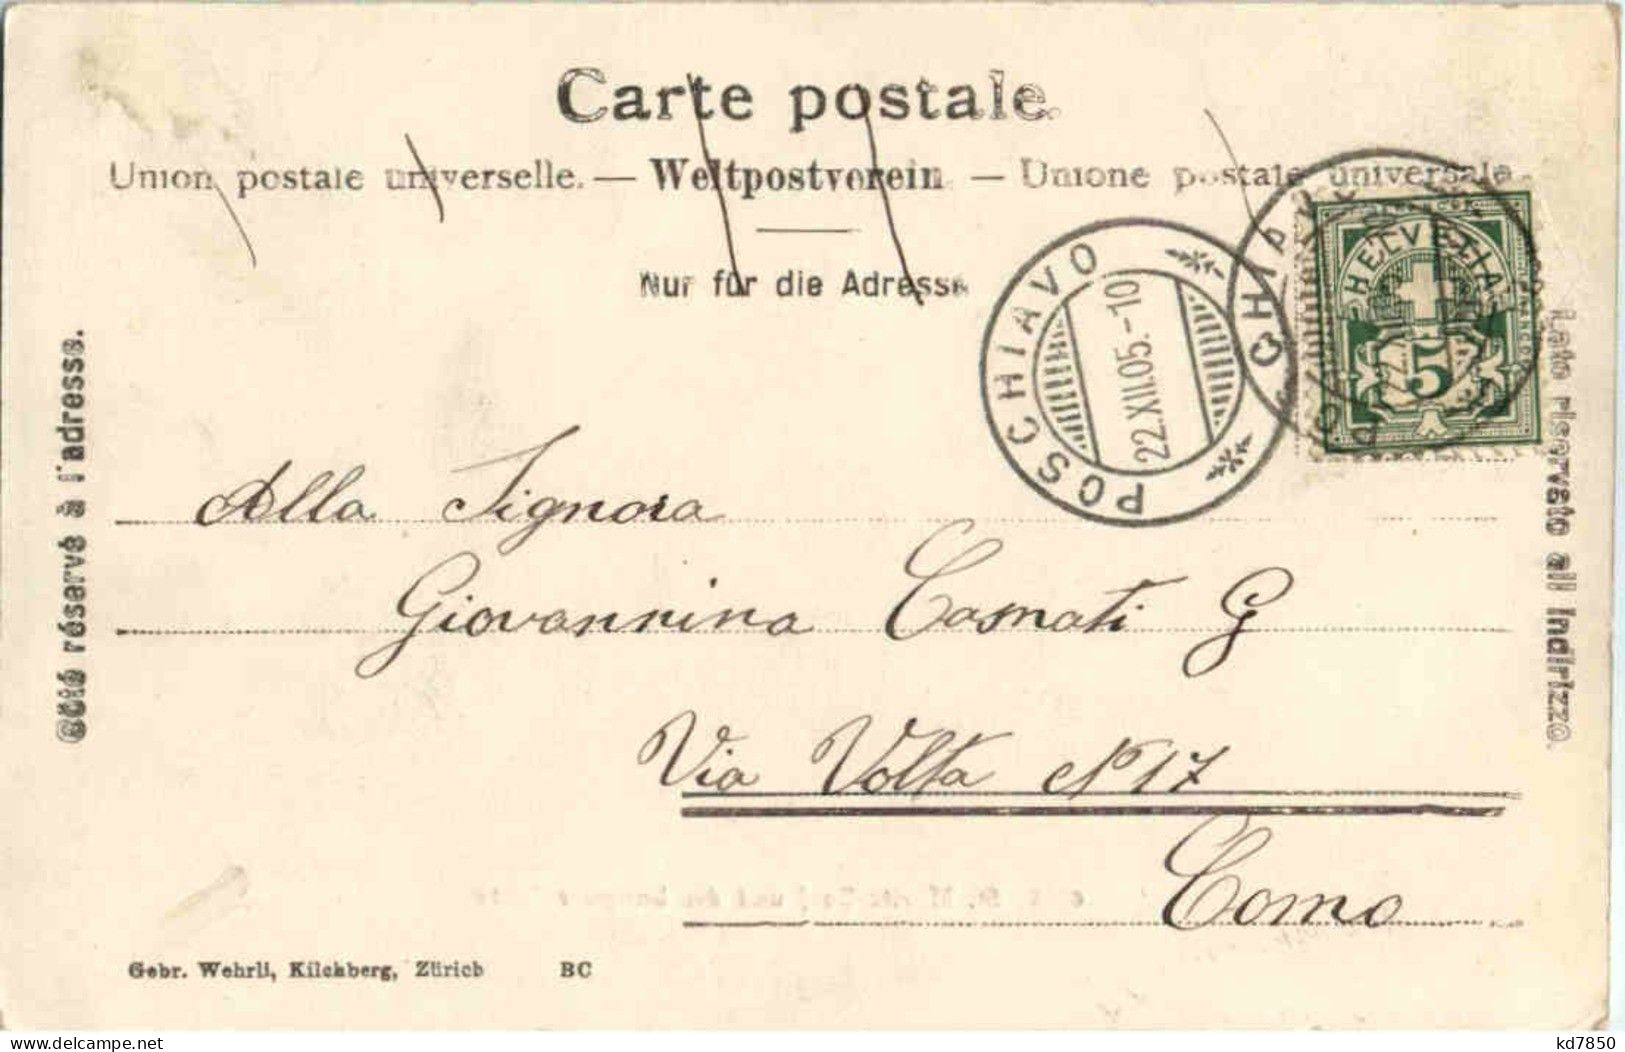 Carte postale.
Union postale universelle. — Weltpostverein — Unione postale universale.
Nur für die Adresse
Côté réservé à l'adresse.
Lato riservato all Indirizzo.
POSCHIAVO
22.XII.05.-10
POSCHIAVO
HELVETIA
5
Alla Signora
Giovannina Casnati G
Via Volta N 17
Como
Gebr. Wehrli, Kilchberg, Zürich BC
delcampe.net
kd7850